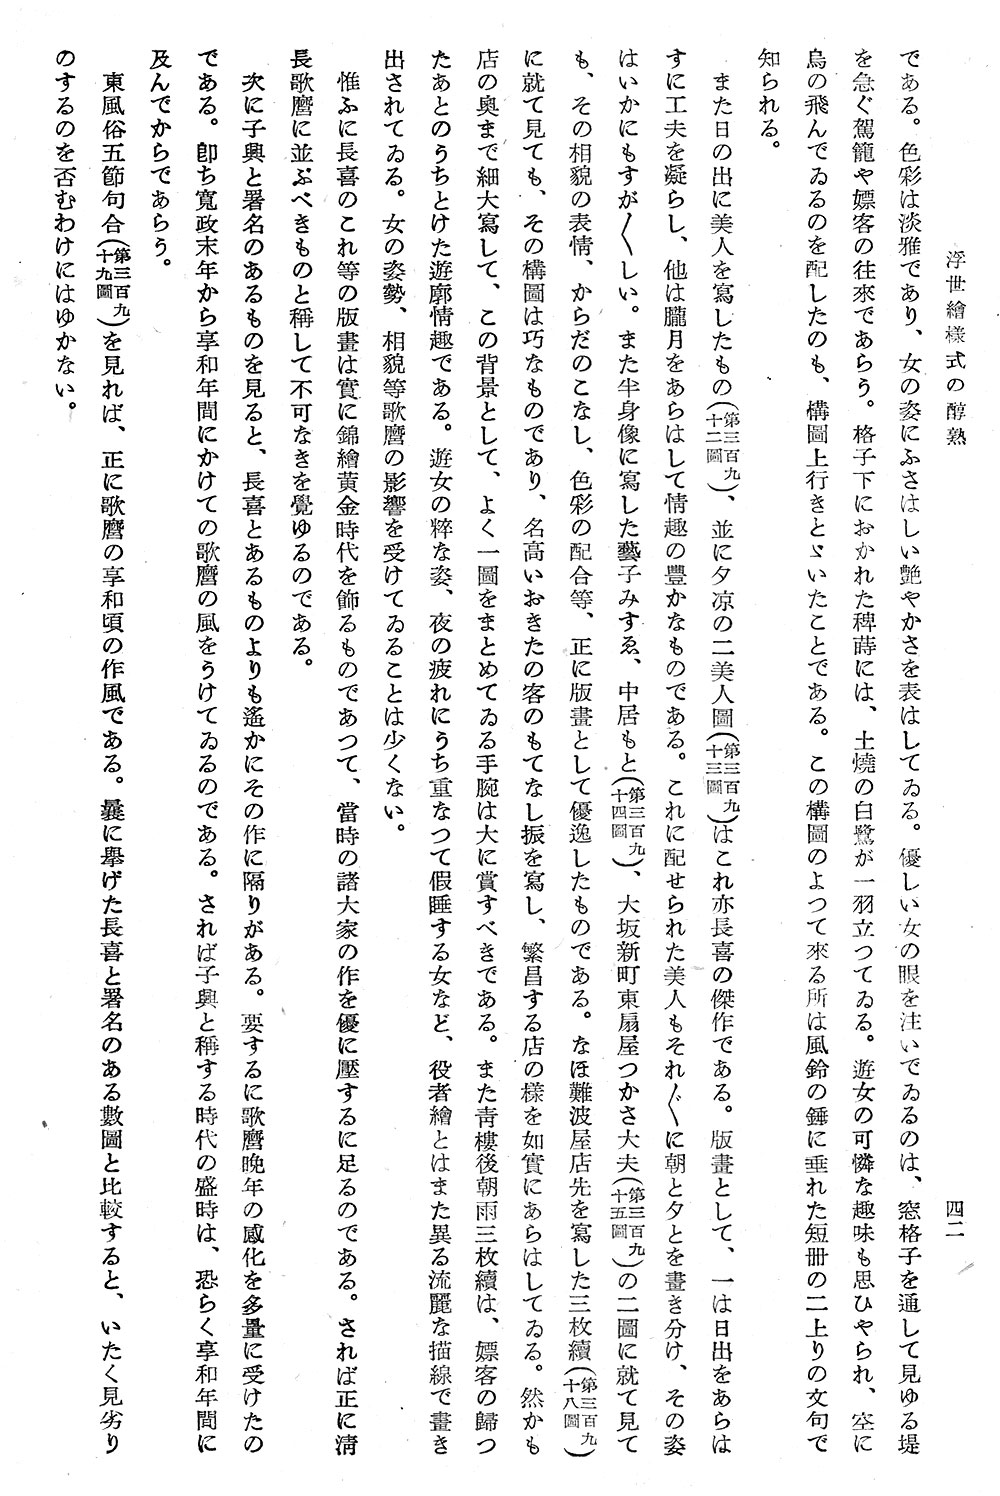 浮世繪樣式の醇熟
四二
である。色彩は淡雅であり、女の姿にふさはしい艶やかさを表はしてゐる。優しい女の眼を注いでゐるのは、窓格子を通して見ゆる堤
を急ぐ駕籠や嫖客の往來であらう。格子下におかれた稗蒔には、土燒の白鷺が一羽立つてゐる。遊女の可憐な趣味も思ひやられ、空に
烏の飛んでゐるのを配したのも、構圖上行きとゞいたことである。この構圖のよつて來る所は風鈴の錘に垂れた短冊の二上りの文句で
知られる。
また日の出に美人を寫したもの(第三百九十二圖)、並に夕凉の二美人圖(第三百九十三圖)はこれ亦長喜の傑作である。版畫として、一は日出をあらは
すに工夫を凝らし、他は朧月をあらはして情趣の豊かなものである。これに配せられた美人もそれ〴〵に朝と夕とを畫き分け、その姿
はいかにもすが〱しい。また半身像に寫した藝子みすゑ、中居もと(第三百九十四圖)、大坂新町東扇屋つかさ大夫(第三百九十五圖)の二圖に就て見て
も、その相貌の表情、からだのこなし、色彩の配合等、正に版畫として優逸したものである。なほ難波屋店先を寫した三枚續(第三百九十八圖)
に就て見ても、その構圖は巧なものであり、名高いおきたの客のもてなし振を寫し、繁昌する店の樣を如實にあらはしてゐる。然かも
店の奥まで細大寫して、この背景として、よく一圖をまとめてゐる手腕は大に賞すべきである。また靑樓後朝雨三枚續は、嫖客の歸つ
たあとのうちとけた遊廓情趣である。遊女の粹な姿、夜の疲れにうち重なつて假睡する女など、役者繪とはまた異る流麗な描線で畫き
出されてゐる。女の姿勢、相貌等歌麿の影響を受けてゐることは少くない。
惟ふに長喜のこれ等の版畫は實に錦繪黄金時代を飾るものであつて、當時の諸大家の作を優に壓するに足るのである。されば正に淸
長歌麿に並ぶべきものと稱して不可なきを覺ゆるのである。
次に子興と署名のあるものを見ると、長喜とあるものよりも遙かにその作に隔りがある。要するに歌麿晩年の感化を多量に受けたの
である。卽ち寬政末年から享和年間にかけての歌麿の風をうけてゐるのである。されば子興と稱する時代の盛時は、恐らく享和年間に
及んでからであらう。
東風俗五節句合(第三百九十九圖)を見れば、正に歌麿の享和頃の作風である。曩に擧げた長喜と署名のある數圖と比較すると、いたく見劣り
のするのを否むわけにはゆかない。